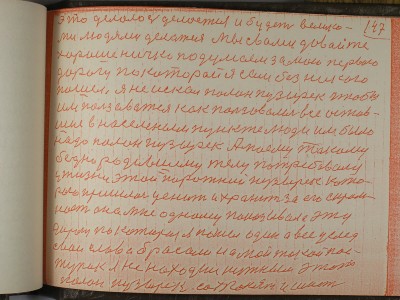 147
это делалос делоется и будет велико-
ми людями делатся Мы свами давайте
хорошенечко подумаем замою первою
дорогу по которай я сам без никого
пошел. Я не искал полон пузырек чтобы
им ползоватся как ползовалися все остав-
шие в населеном пункте люди им было
надо полон пузырек А моему такому
бедно родившему телу потребовалу
жизни этой порожний пузырек кото-
рого пришлос ценить и хранит за его скром-
ност она мне одному показывала эту
дорогу по которай я пошел один а все услед
свои слова бросали на мой такой пос-
тупок я не находил нужным этого
полон пузырек